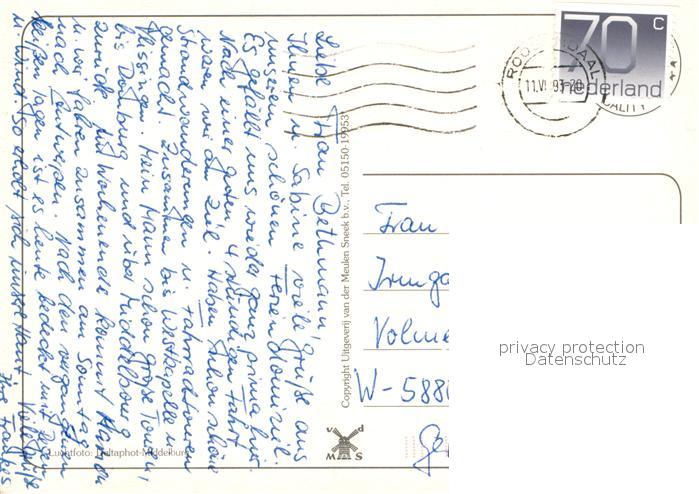 Liebe Frau Bethmann,
Ihnen u. Sabine viele Grüße aus
unserem schönen Feriendomizil.
Es gefällt uns wieder ganz prima hier.
Nach einer guten 4 stündigen Fahrt
waren wir am Ziel. Haben schon schöne
Strandwanderungen u. Fahrradtouren
gemacht. Zusammen bis Westkapelle u.
Vlissingen. Mein Mann schon große Touren,
bis Domburg und über Middelburg
zurück. Am Wochenende kommt
u. wir fahren zusammen am Sonntag
nach Antwerpen. Nach den vergangenen
heißen Tagen ist es heute bedeckt mit Regen
u. Wind. So erholt sich unsere Haut. Viele Grüße
Ihre
Luchtfoto: Deltaphot-Middelburg
Copyright Uitgeverij van der Meulen Sneek b.v., Tel. 05150-19953
v d
M S
70 c
nederland
ROOSENDAAL
11.VI.93-20
Frau
Irmga
Volme
W-588
Ge
privacy protection
Datenschutz